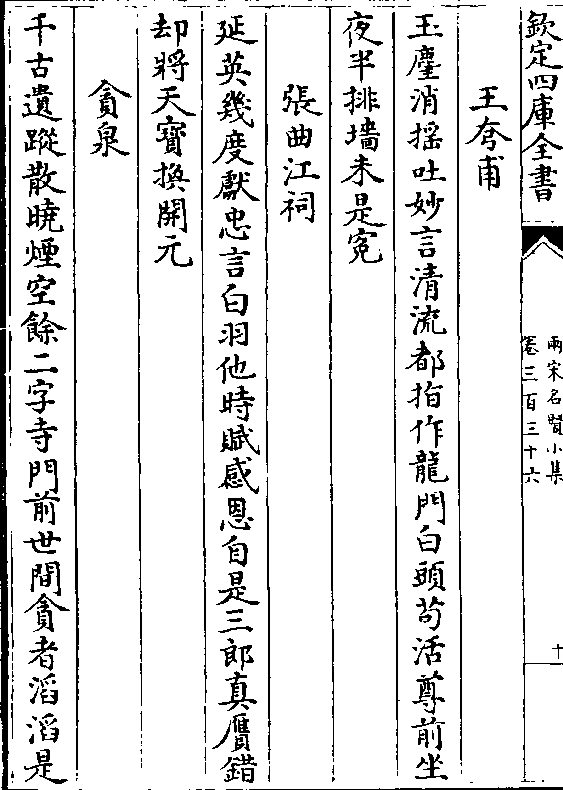 欽定四庫全書
兩宋名賢小集
卷三百三十六
十
王夸甫
玉麈消揺吐妙言清流都指作龍門白頭茍活尊前坐
夜半排墻未是寃
張曲江祠
延英幾度獻忠言白羽他時賦感恩自是三郎真贋錯
却將天寶換開元
貪泉
千古遺蹤散曉煙空餘二字寺門前世間貪者滔滔是